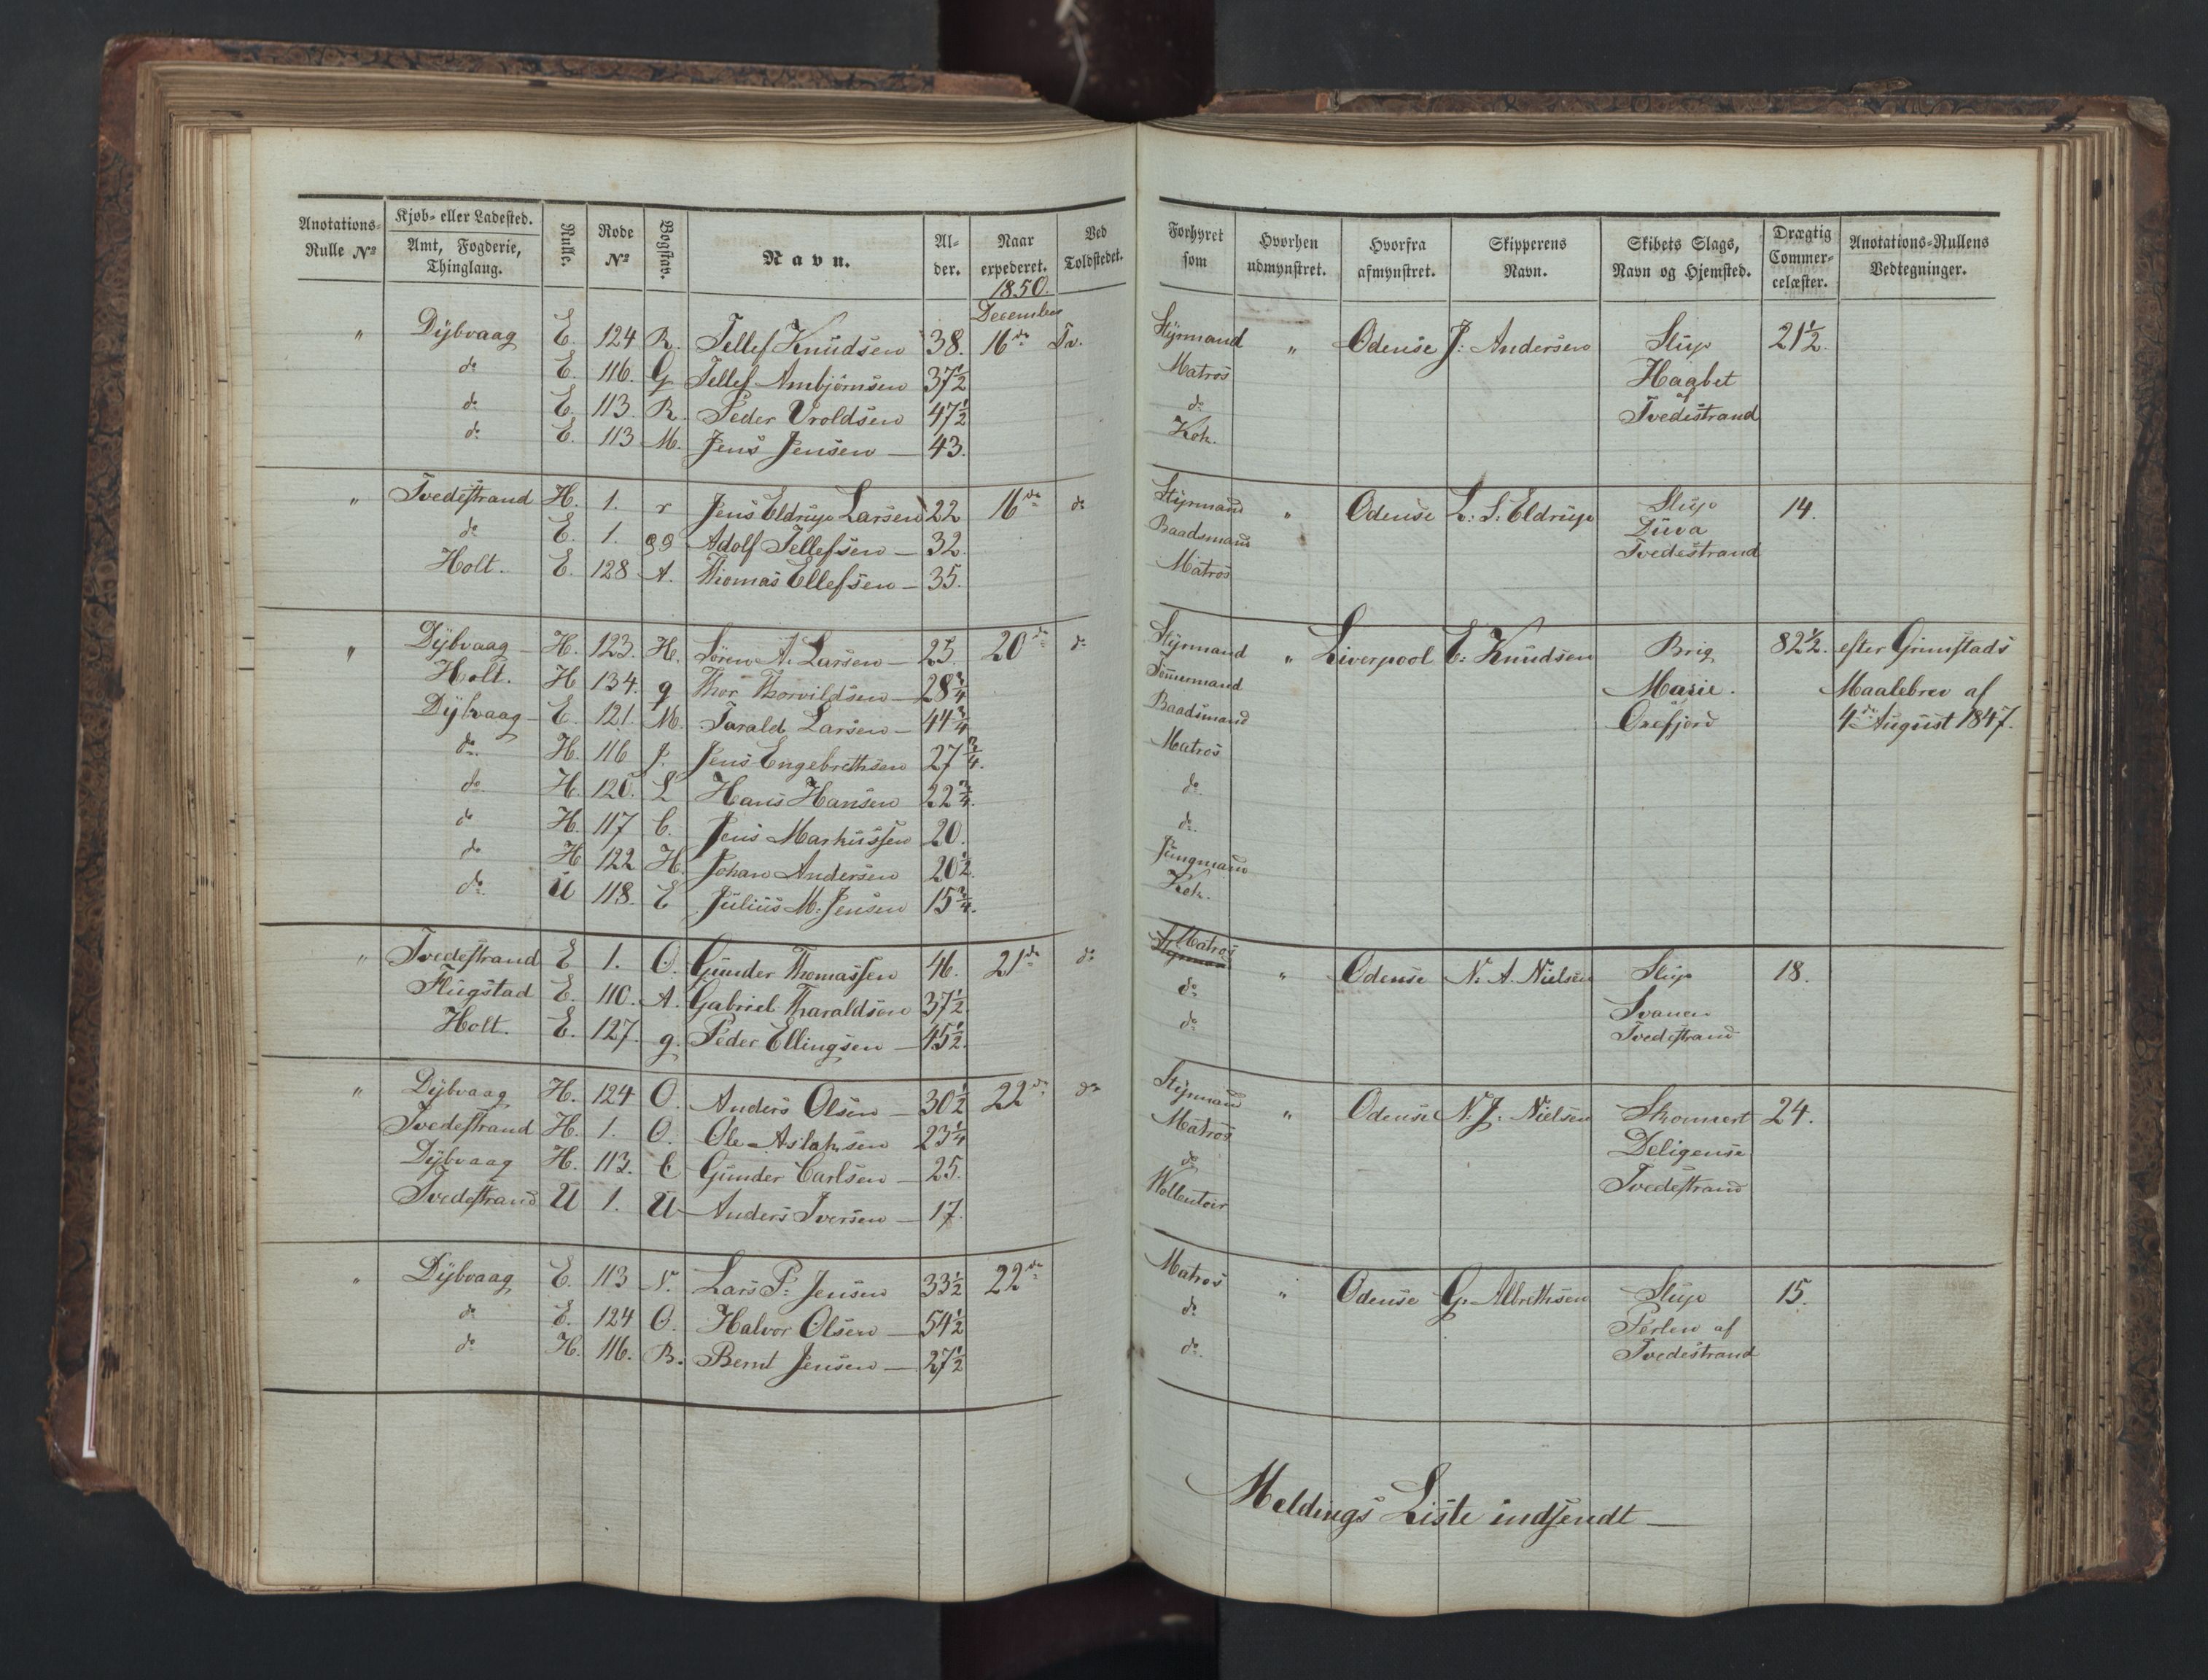 Anotations-Rulle № | Kjøb- eller Ladested. Amt, Fogderie, Thinglaug. | Rulle. | Rode № | Bogstav. | Navn. | Alder. | Naar expederet. | Ved Toldstedet.
1850.
December
" Dÿbvaag E. 124 R. Tellef Knudsen 38. 16de Tv.
do E. 116. G Tellef Ambjørnsen 37½
do E. 113. R. Peder Uroldsen 47½
do E. 113 M. Jens Jensen — 43.
" Tvedestrand H. 1. r Jens Eldrup Larsen 22 16de do
do E. 1. 99 Adolf Tellefsen — 32.
Holt. E. 128 A. Thomas Ellefsen — 35.
" Dÿbvaag H. 123. H. Søren A. Larsen — 25. 20de do
Holt. H 134. g Thor Thorvildsen — 28¾
Dÿbvaag E. 121. M. Tarald Larsen — 44¾
do H. 116 J. Jens Engebrethsen 27¾.
do H. 120. L Hans Hansen 22¾.
do H. 117 C. Jens Markussen 20.
do H 122 H. Johan Andersen 20½.
do U 118. E Julius M. Jensen 15¾.
" Tvedestrand E 1. O. Gunder Thomassen 46. 21de do
Flugstad E. 110. A. Gabriel Tharaldsen 37½.
Holt. E. 127. g. Peder Ellingsen — 45½.
" Dÿbvaag H. 124 O. Anders Olsen — 30½ 22de do
Tvedestrand H. 1. O. Ole Aslaksen 23¼
Dÿbvaag H. 113. C Gunder Carlsen — 25.
Tvedestrand U 1. U Anders Iversen — 17.
" Dÿbvaag E. 113 N. Lars P. Jensen 33½ 22de
do E. 124 O. Halvor Olsen — 54½
do H. 116. B. Bernt Jensen — 27½
Forhyret som | Hvorhen udmynstret. | Hvorfra afmynstret. | Skipperens Navn. | Skibets Slags, Navn og Hjemsted. | Drægtig Commercelæster. | Anotations-Rullens Vedtegninger.
Stÿrmand " Odense J: Andersen Slup 21½.
Matros Haabet
do af
Kok. Tvedestrand
Stÿrmand " Odense L: S. Eldrup Slup 14.
Baadsmand Duva
Matros Tvedestrand
Stÿrmand " Liverpool E: Knudsen Brig 82½. efter Grimstads
Tømmermand Marie. Maalebrev af
Baadsmand Oxefjord 4de August 1847.
Matros
do
do
Jungmand
Kok.
Matros
" Odense N. A. Nielsen Slup 18.
do Svanen
do Tvedestrand
Stÿrmand " Odense N. J. Nielsen Skonnert 24.
Matros Deligense
do Tvedestrand
Matros " Odense G. Albrethsen Slup 15.
do Perlen af
do. Tvedestrand
Meldings Liste indsendt —